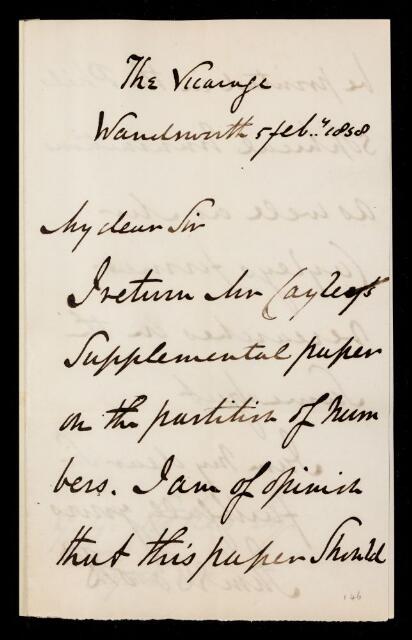 The Vicarage
Wandsworth 5 feb..y 1858
My dear Sir
I return Mr Cayley's
Supplemental paper
on the partition of Num
bers. I am of opinion
that this paper Should
146